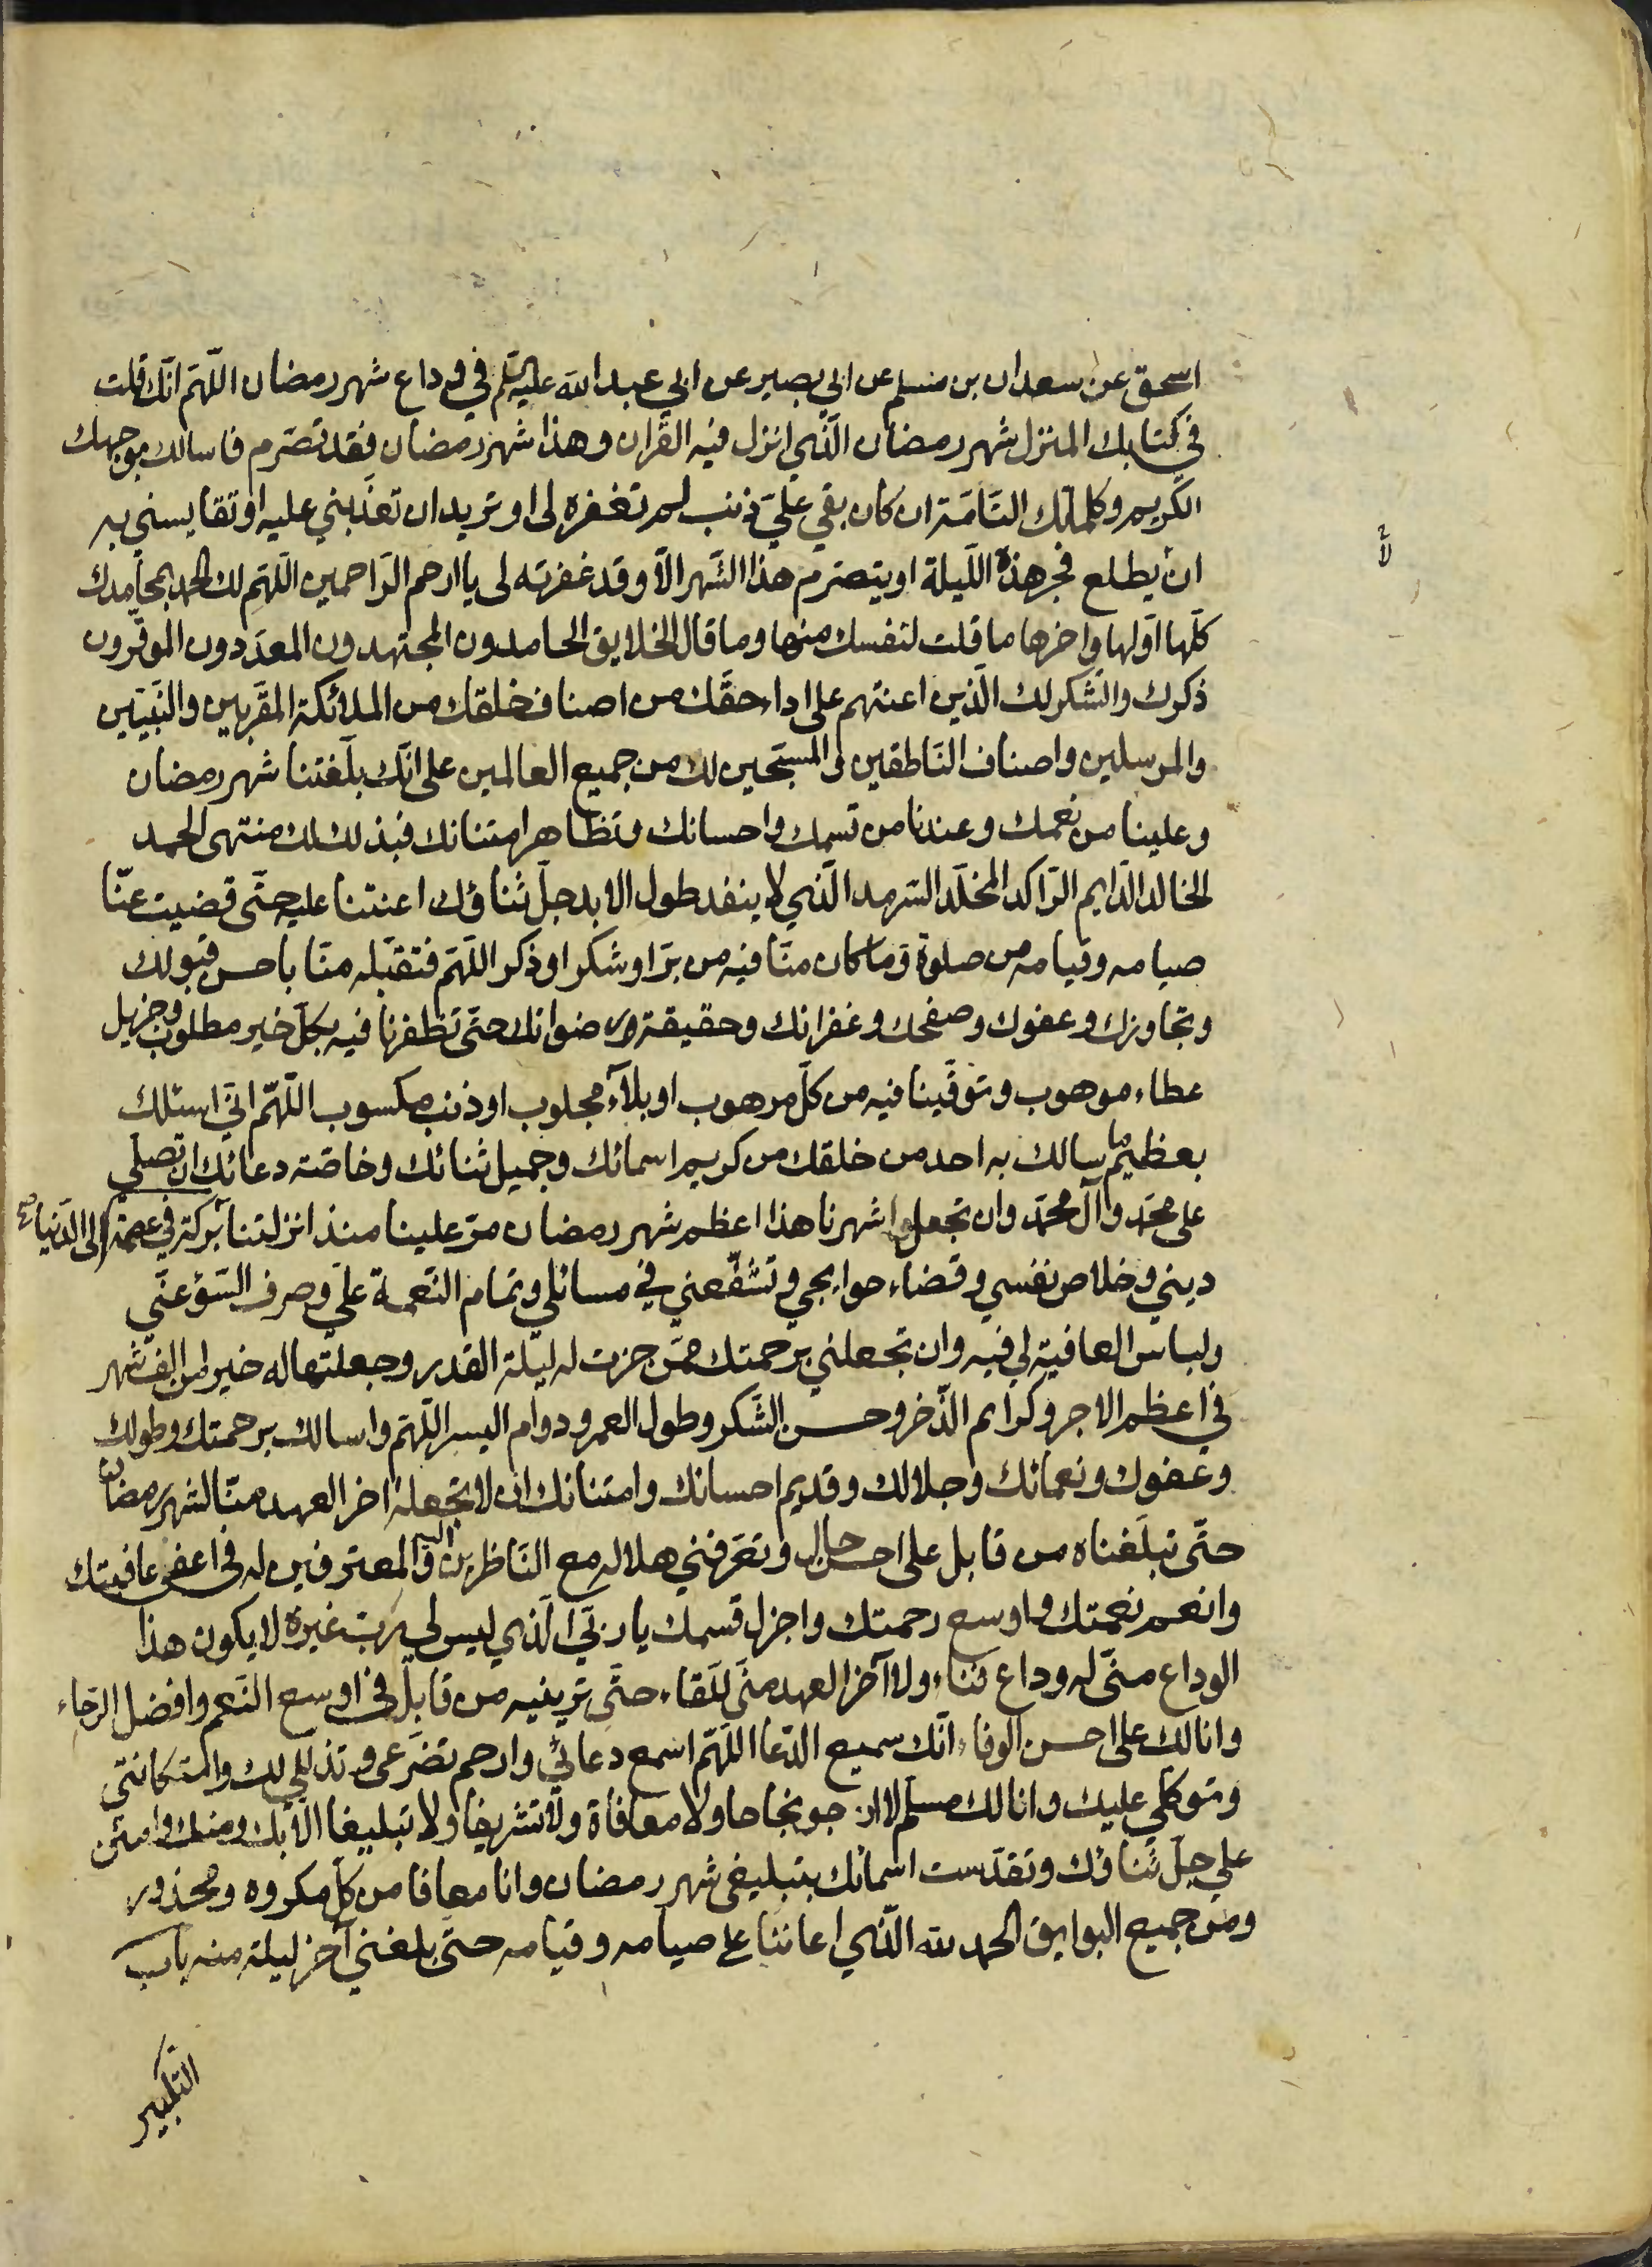 اسحق عن سعدان بن مسلم عن ابي بصير عن ابي عبد الله عليه السلم في وداع شهر رمضان اللّهمّ انّك قلت
في كتابك المنزل شهر رمضان الّذي انزل فيه القرآن وهذا شهر رمضان فقد تصرّم فاسالك بوجهك
الكريم وكلماتك التّامّة ان كان بقي عليّ ذنب لم تغفره لى او تريد ان تعذّبني عليه او تقايسني به
ان يطلع فجر هذه اللّيلة او يتصرّم هذا الشّهر الّا وقد غفرته لى يا ارحم الرّاحمين اللّهمّ لك الحمد بمحامدك
كلّها اوّلها واخرها ما قلت لنفسك منها وما قال الخلايق الحامدون المجتهدون المعدّدون الموقّرون
ذكرك والشّكر لك الّذين اعنتهم على اداء حقّك من اصناف خلقك من الملائكة المقرّبين والنّبيّين
والمرسلين واصناف النّاطقين والمسبّحين لك من جميع العالمين على انّك بلّغتنا شهر رمضان
وعلينا من نعمك وعندنا من قسمك واحسانك وتظاهر امتنانك فبذلك لك منتهى الحمد
الخالد الدّايم الرّاكد المخلّد السّرمد الّذي لا ينفد طول الابد جلّ ثناؤك اعنتنا عليه حتّى قضيت عنّا
صيامه وقيامه من صلوة وما كان منّا فيه من برّ او شكر او ذكر اللّهمّ فتقبّله منّا باحسن قبولك
وتجاوزك وعفوك وصفحك وغفرانك وحقيقة رضوانك حتّى تظفرنا فيه بكلّ خير مطلوب وجزيل
عطاء موهوب وتوقّينا فيه من كلّ مرهوب او بلاء مجلوب او ذنب مكسوب اللّهمّ انّي اسئلك
بعظيم ما سالك به احد من خلقك من كريم اسمائك وجميل ثنائك وخاصّة دعائك ان تصلي
على محمّد وآل محمّد وان تجعل شهرنا هذا اعظم شهر رمضان مرّ علينا منذ انزلتنا الى الدّنيا بركة في عصمة
ديني وخلاص نفسي وقضاء حوايجي وتشفّعني في مسائلي وتمام النّعمة عليّ وصرف السّوء عنّي
ولباس العافية لي فيه وان تجعلني برحمتك ممّن حزت له ليلة القدر وجعلتها له خيرا من الف شهر
في اعظم الاجر وكرايم الذّخر وحسن الشّكر وطول العمر ودوام اليسر اللّهمّ واسالك برحمتك وطولك
وعفوك ونعمائك وجلالك وقديم احسانك وامتنانك ان لا تجعله اخر العهد منّا لشهر رمضان
حتّى تبلّغناه من قابل على احسن حال وتعرّفني هلاله مع النّاظرين اليه والمعترفين له في اعفى عافيتك
وانعم نعمتك واوسع رحمتك واجزل قسمك يا ربّي الّذي ليس لي ربّ غيره لا يكون هذا
الوداع منّي له وداع فناء ولا آخر العهد منّي للّقاء حتّى ترينيه من قابل في اوسع النّعم وافضل الرّجاء
وانا لك على احسن الوفاء انّك سميع الدّعا اللّهمّ اسمع دعائي وارحم تضرّعي وتذلّلي لك واستكانتي
وتوكّلي عليك وانا لك مسلّم لا ارجو نجاحا ولا معافاة ولا تشريفا ولا تبليغا الّا بك ومنك وامنن
علي جلّ ثناؤك وتقدّست اسمائك بتبليغي شهر رمضان وانا معافا من كلّ مكروه ومحذور
ومن جميع البوايق الحمد لله الّذي اعاننا على صيامه وقيامه حتّى بلغني آخر ليلة منه باب
التكبير